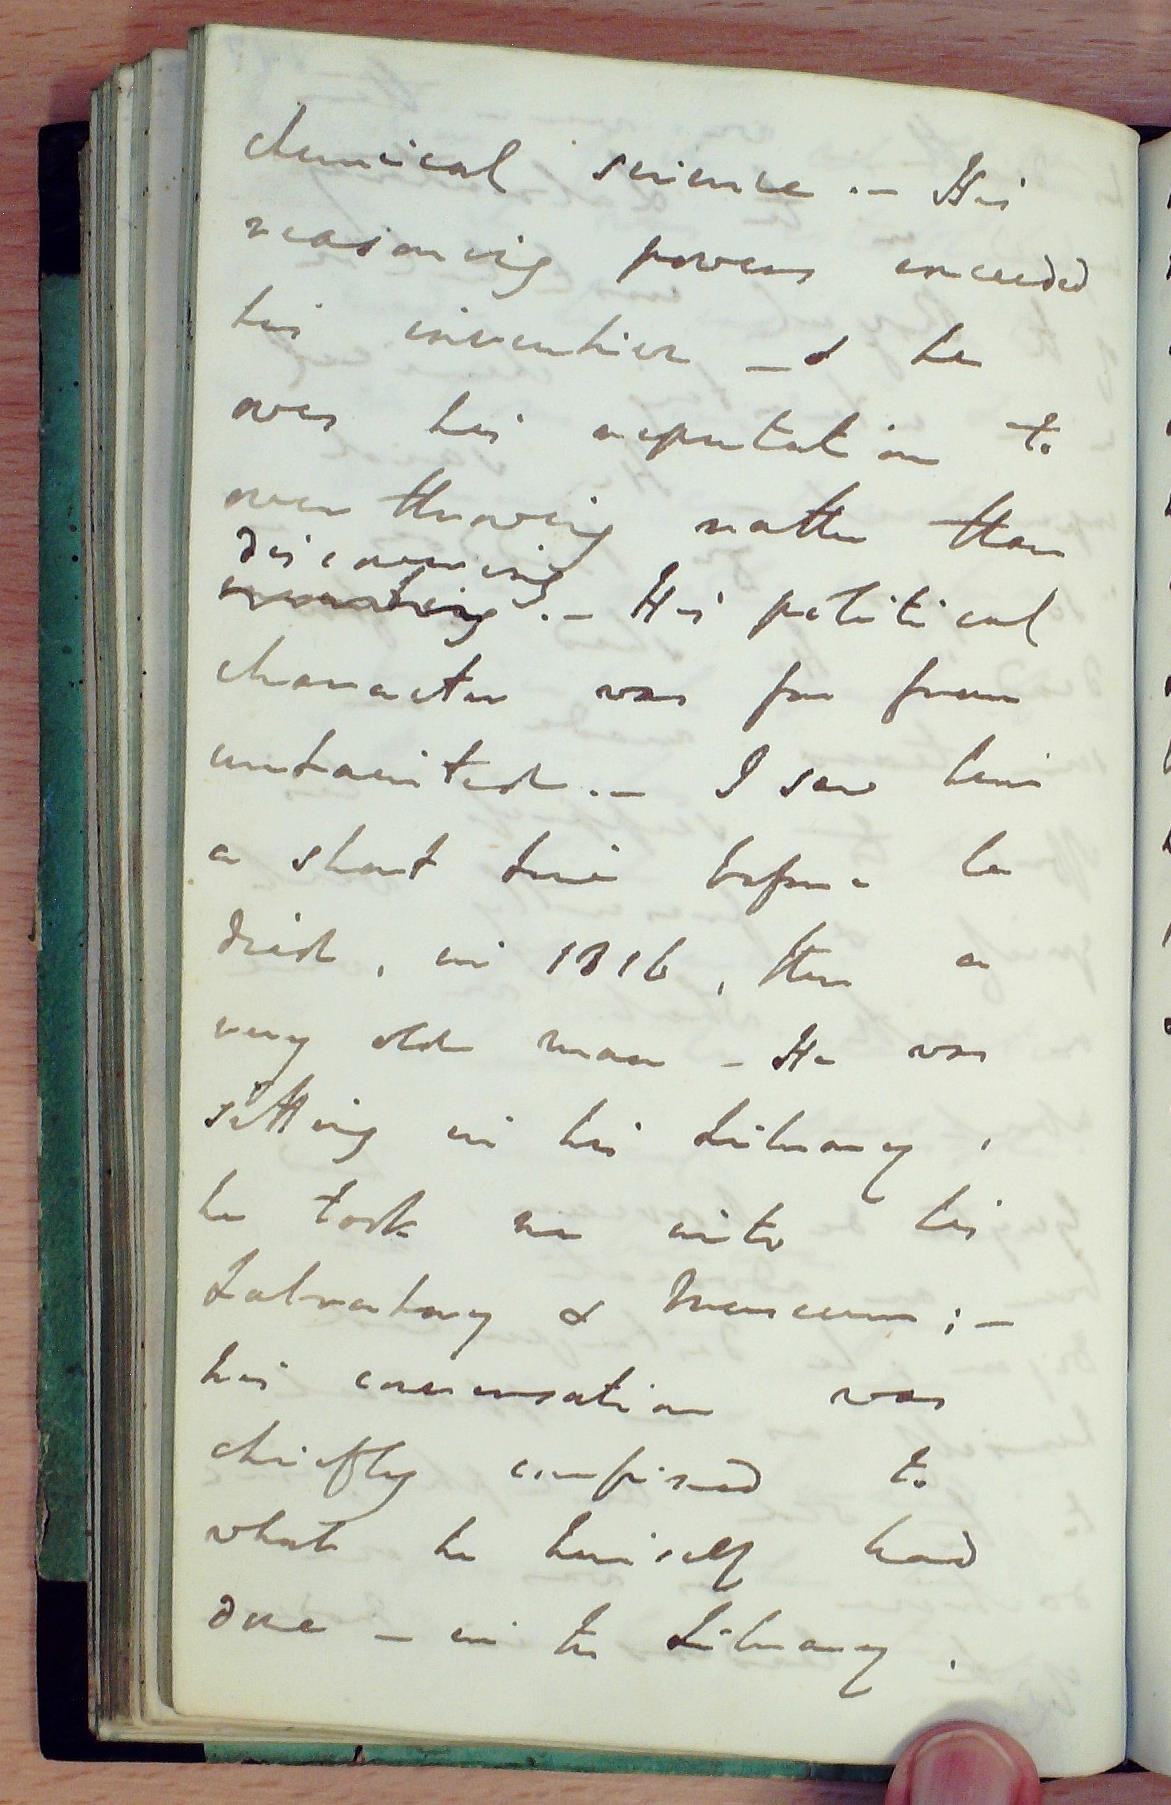 chemical science. — His
reasoning powers exceeded
his invention — & he
owes his reputation to
overthrowing rather than
discovering
. — His political
character was far from
untainted. — I saw him
a short time before he
died, in 1816, then a
very old man — He was
sitting in his Library,
he took me into his
Laboratory & Museum; —
his conversation was
chiefly confined to
what he himself had
done — in the Library,